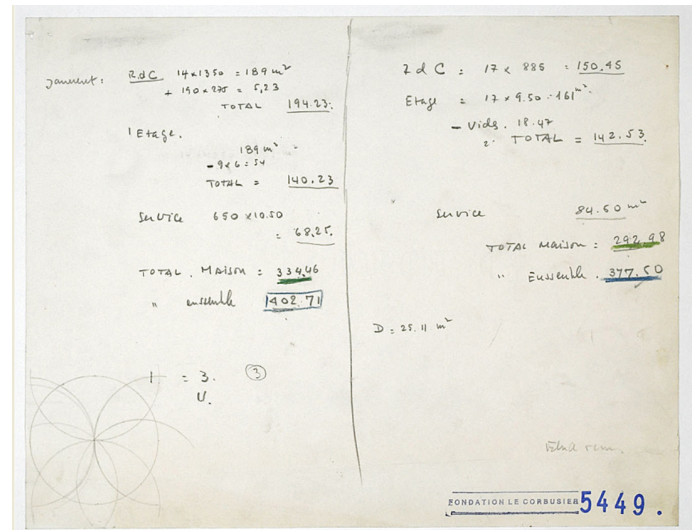 Janvier : RdC 14 x 1350 = 189 m²
+ 190 x 275 = 5,23
TOTAL 194.23.
1 Etage.
189 m²
- 9 x 6 = 54
TOTAL = 140.23
Service 650 x 10.50
= 68.25.
TOTAL. Maison = 334.46
" ensemble 402.71
1 = 3. 3
U.
RdC = 17 x 885 = 150.45
Etage = 17 x 9.50 = 161 m²
- Vide. 18.47
TOTAL = 142.53.
Service 84.50 m²
TOTAL Maison = 292.98
" Ensemble. 377.50
D = 25.11 m²
FONDATION LE CORBUSIER 5449.